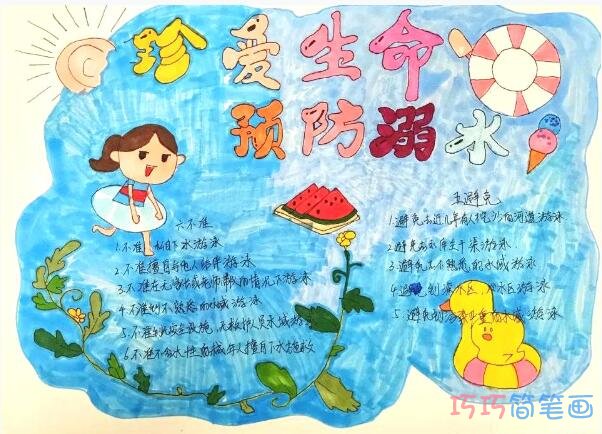 珍爱生命
预防溺水
六不准
1.不准私自下水游泳
2.不准擅自与他人结伴游泳
3.不准在无家长或老师带领的情况下游泳
4.不准到不熟悉的水域游泳
5.不准到无安全设施、无救护人员水域游泳
6.不准不会水性的 擅自下水施救
五避免
1.避免去近几年有人挖沙的河道游泳
2.避免去 干渠游泳
3.避免去不熟悉的水域游泳
4.避免到深水区 冰区游泳
5.避免到 的水域游泳
巧巧简笔画